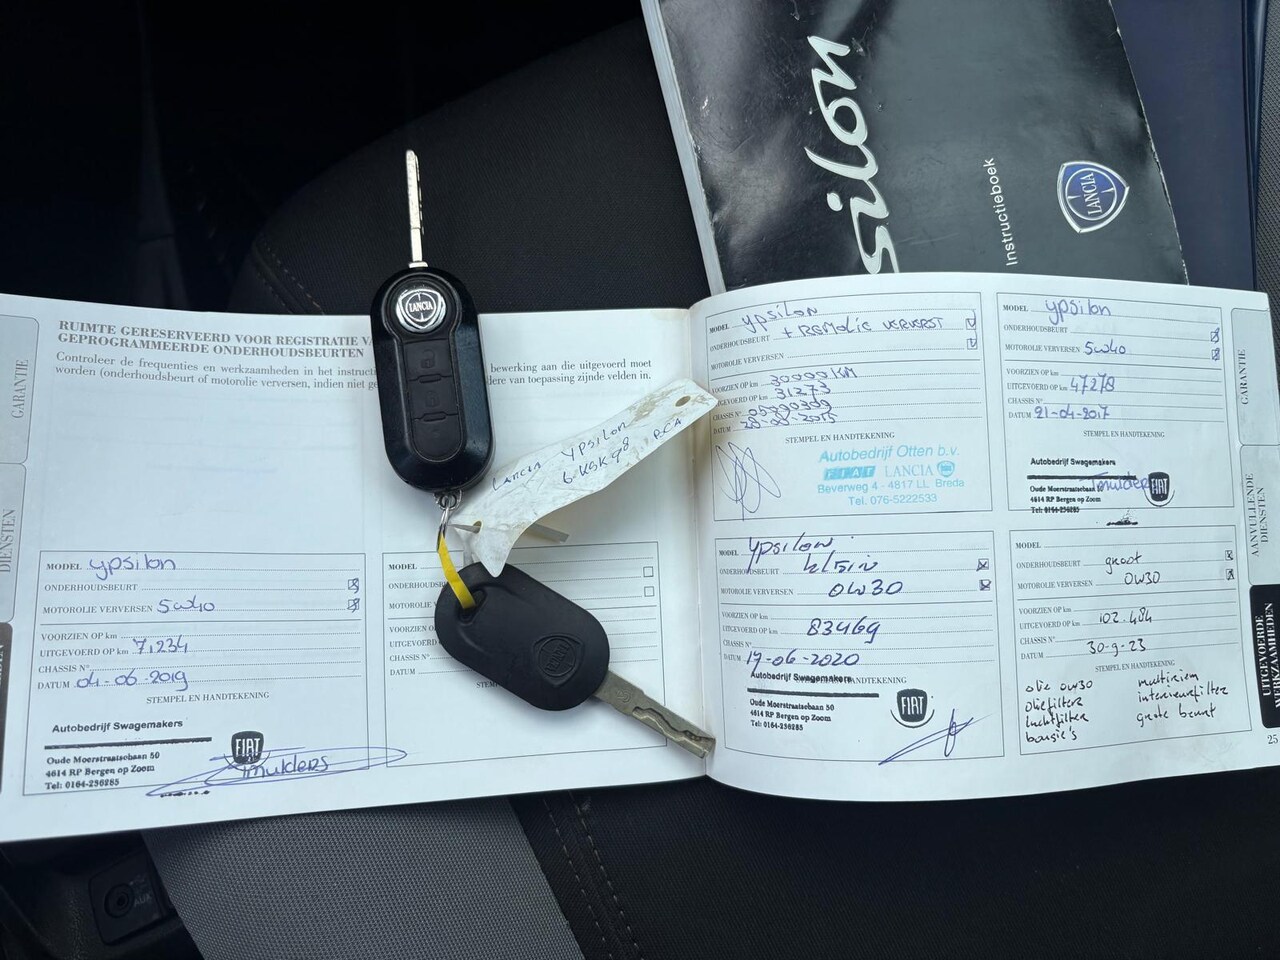 silon
Instructieboek
LANCIA
LANCIA
GARANTIE
DIENSTEN
RUIMTE GERESERVEERD VOOR REGISTRATIE VA
GEPROGRAMMEERDE ONDERHOUDSBEURTEN
Controleer de frequenties en werkzaamheden in het instruct
bewerking aan die uitgevoerd moet
worden (onderhoudsbeurt of motorolie verversen, indien niet ge
dere van toepassing zijnde velden in.
Lancia Ypsilon
6-KSK-98
MODEL ypsilon
ONDERHOUDSBEURT
MOTOROLIE VERVERSEN 5w40
VOORZIEN OP km
UITGEVOERD OP km 71234
CHASSIS N°
DATUM 04-06-2019
STEMPEL EN HANDTEKENING
Autobedrijf Swagemakers
Oude Moerstraatsebaan 50
4614 RP Bergen op Zoom
Tel: 0164-236285
FIAT
Tmulders
MODEL
ONDERHOUDSB
MOTOROLIE
VOORZIEN OP
UITGEVOERD
CHASSIS N°
DATUM
STEM
MODEL ypsilon
ONDERHOUDSBEURT + REMOLIE VERVERST
MOTOROLIE VERVERSEN
VOORZIEN OP km 30000 KM
UITGEVOERD OP km 31273
CHASSIS N°
DATUM 28-08-2015
STEMPEL EN HANDTEKENING
Autobedrijf Otten b.v.
FIAT LANCIA
Beverweg 4 - 4817 LL Breda
Tel. 076-5222533
MODEL ypsilon
ONDERHOUDSBEURT
MOTOROLIE VERVERSEN 5w40
VOORZIEN OP km
UITGEVOERD OP km 47278
CHASSIS N°
DATUM 21-04-2017
STEMPEL EN HANDTEKENING
Autobedrijf Swagemakers
Oude Moerstraatsebaan 50
4614 RP Bergen op Zoom
Tel: 0164-236285
Tmulders
FIAT
MODEL ypsilon
ONDERHOUDSBEURT klein
MOTOROLIE VERVERSEN 0W30
VOORZIEN OP km
UITGEVOERD OP km 83469
CHASSIS N°
DATUM 17-06-2020
Autobedrijf Swagemakers
Oude Moerstraatsebaan 50
4614 RP Bergen op Zoom
Tel: 0164-236285
FIAT
MODEL
ONDERHOUDSBEURT groot
MOTOROLIE VERVERSEN 0W30
VOORZIEN OP km
UITGEVOERD OP km 102.484
CHASSIS N°
DATUM 30-9-23
STEMPEL EN HANDTEKENING
olie 0W30
oliefilter
luchtfilter
bougie's
multiriem
interieurfilter
grote beurt
GARANTIE
AANVULLENDE
DIENSTEN
UITGEVOERDE
WERKZAAMHEDEN
25
AUX